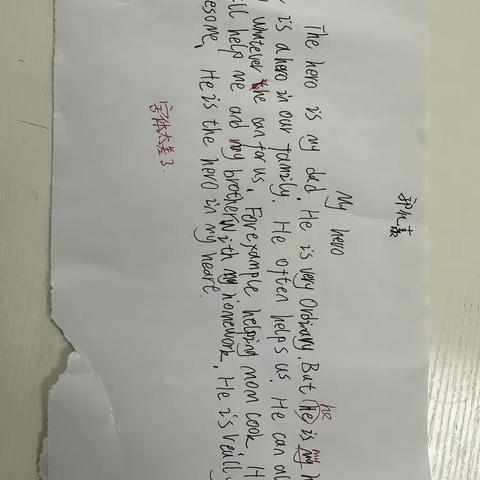 My hero
The hero is my dad. He is very Ordinary. But he is my
is a hero in our family. He often helps us. He can
whatever he can for us. For example, helping mom cook.
help me and my brother with my homework. He is really
He is the hero in my heart.
字体太差了.